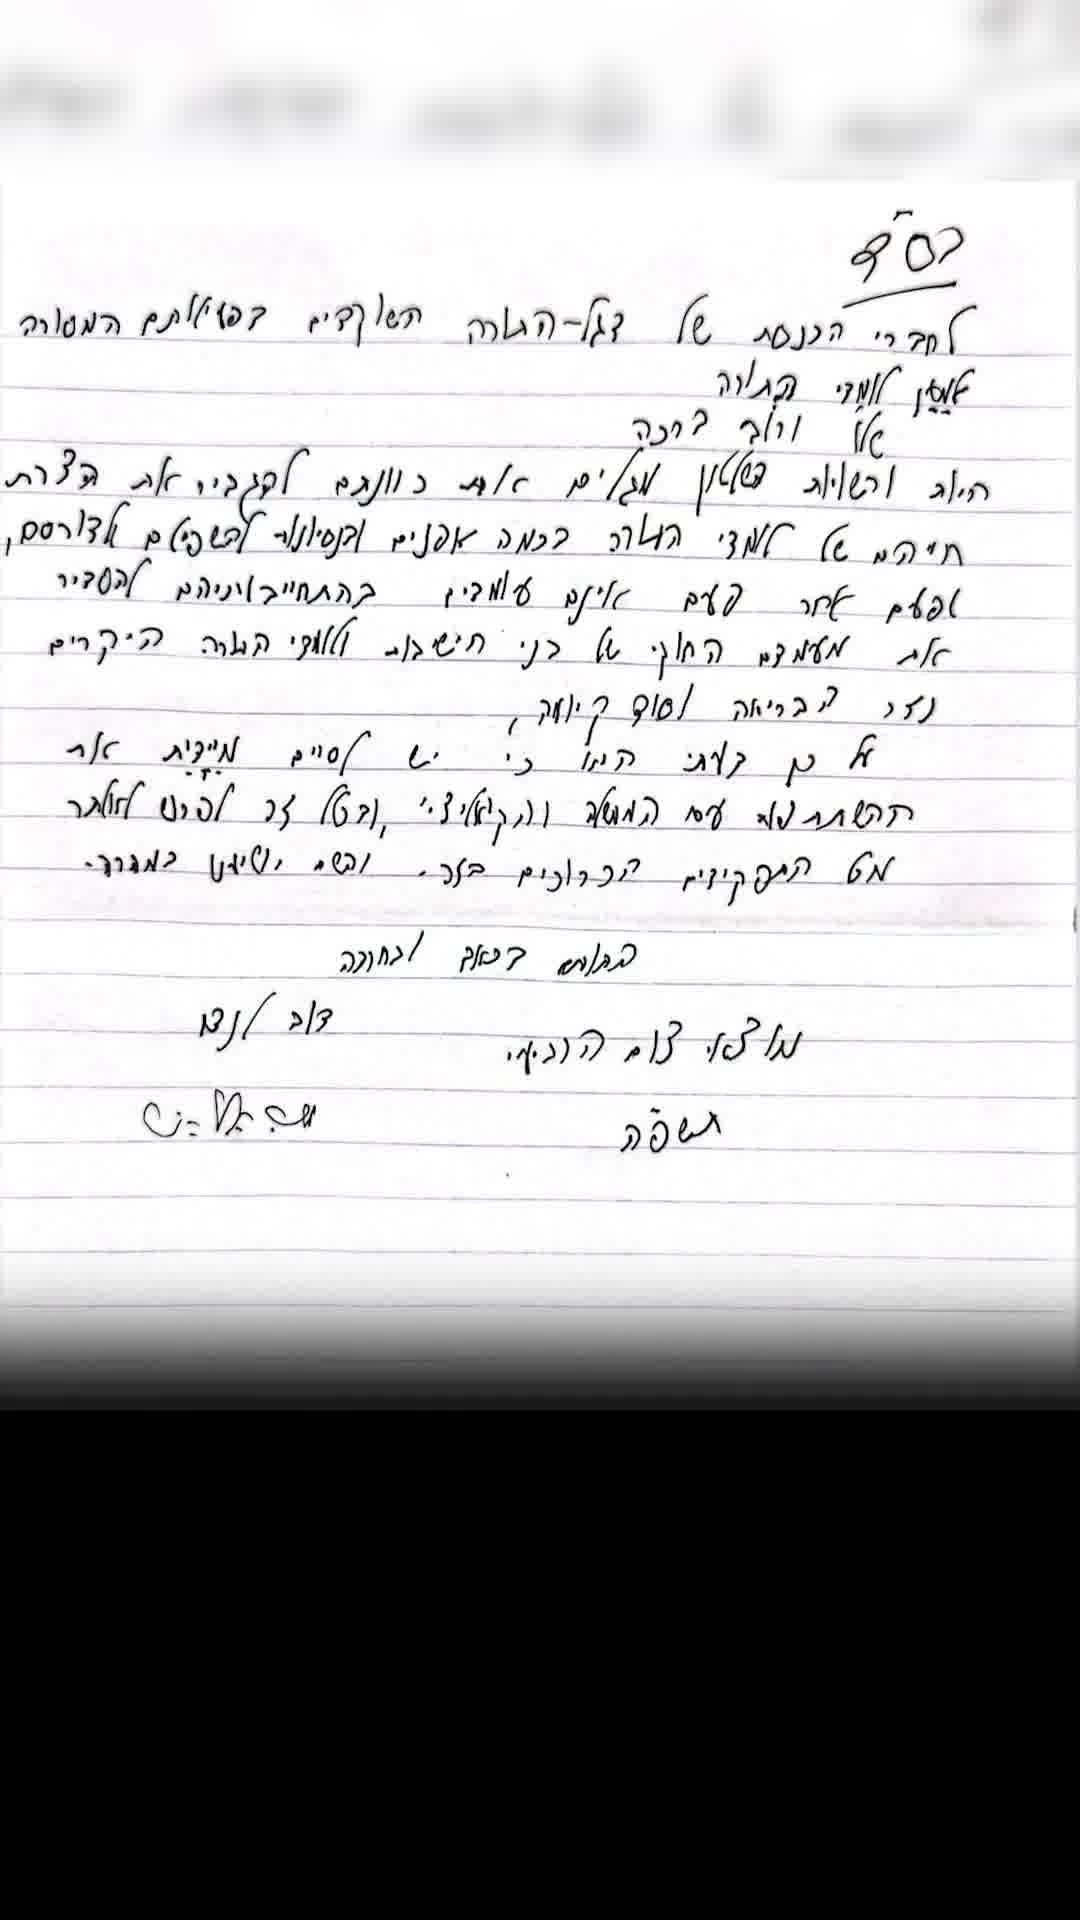 בס"ד
לחברי הכנסת של דגל-התורה השוקדים בפעילותם המסורה
למען לומדי התורה
שלו' ורוב ברכה
היות ורשויות השלטון מגלים את כוונתם להגביר את הצרת
חייהם של לומדי התורה בכמה אפנים ובנסיונות להשפילם ולדורסם,
ופעם אחר פעם אינם עומדים בהתחייבויותיהם להסדיר
את מעמדם החוקי של בני הישיבות ולומדי התורה היקרים
נזר הבריאה וסוד קיומה,
על כן דעתי היא כי יש לסיים מיידית את
ההשתתפות עם הממשלה והקואליצי', ובכלל זה לפרוש לאלתר
מכל התפקידים הכרוכים בזה. והשם יושיענו במהרה.
החותם בכאב ובתקוה
דוב לנדו
מוצאי צום הרביעי
תשפ"ה